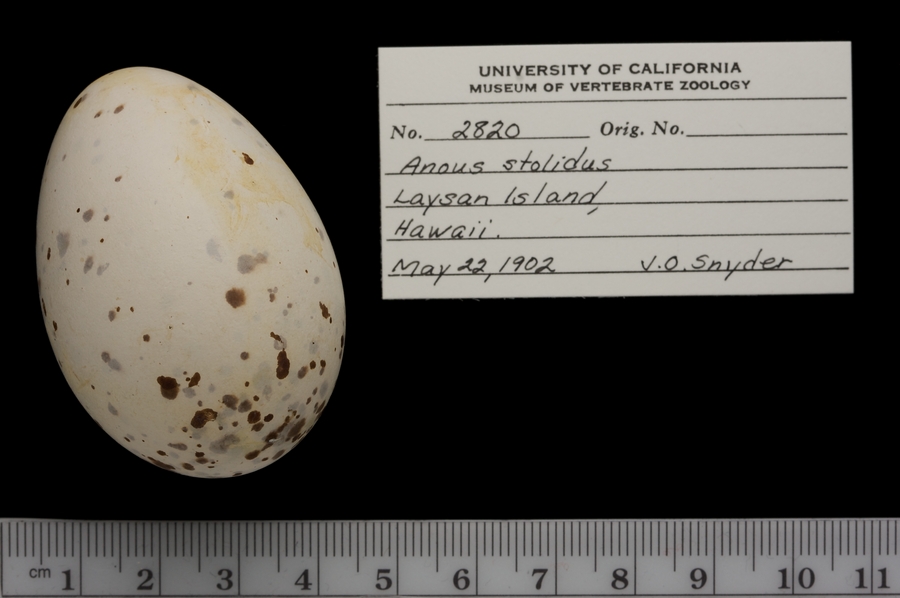 UNIVERSITY OF CALIFORNIA
MUSEUM OF VERTEBRATE ZOOLOGY
No. 2820 Orig. No.
Anous stolidus
Laysan Island,
Hawaii.
May 22, 1902 J.O. Snyder
cm 1 2 3 4 5 6 7 8 9 10 11